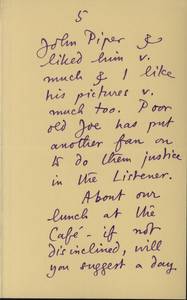 5
John Piper &
liked him v.
much & I like
his pictures v.
much too. Poor
old Joe has put
another fan on
to do them justice
in the Listener.
About our
lunch at the
Café - if not
disinclined, will
you suggest a day